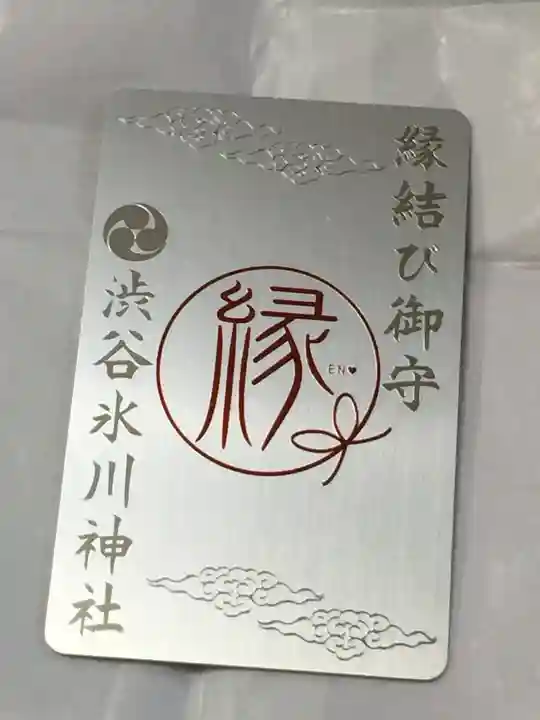 縁結び御守
縁
EN♥
渋谷氷川神社